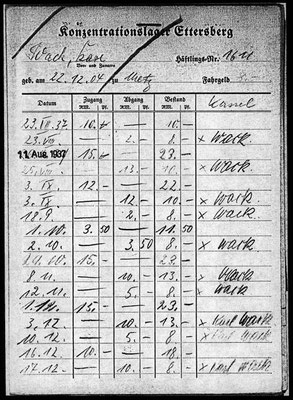 Konzentrationslager Ettersberg
Wack, Karl Häftlings-Nr.
Vor- und Zuname
geb. am 22.12.04 zu Metz Fahrgeld
Kassel
Datum Zugang Abgang Bestand
RM. Pf. RM. Pf. RM. Pf.
23.VII.37 10.– 10.–
23.VII 2.– 8.– × Wack
11. Aug. 1937 15.– 23.–
10.– × Wack.
3. IX. 12.– 22.–
3. IX 12.– 10.– × Wack.
18.9. 2.– 8.– × Wack.
1.10. 3.50 11.50
2.10. 3.50 8.– × Wack.
15.– 23.–
8.11. 10.– 13.– × Wack
12.11. 5.– 8.– × Wack
1.12. 15.– 23.–
3.12. 10.– 13.– × Karl Wack
10.12. 5.– 8.– × Karl Wack
16.12 10.– 18.–
17.12. 10.– 8.– × Karl Wack